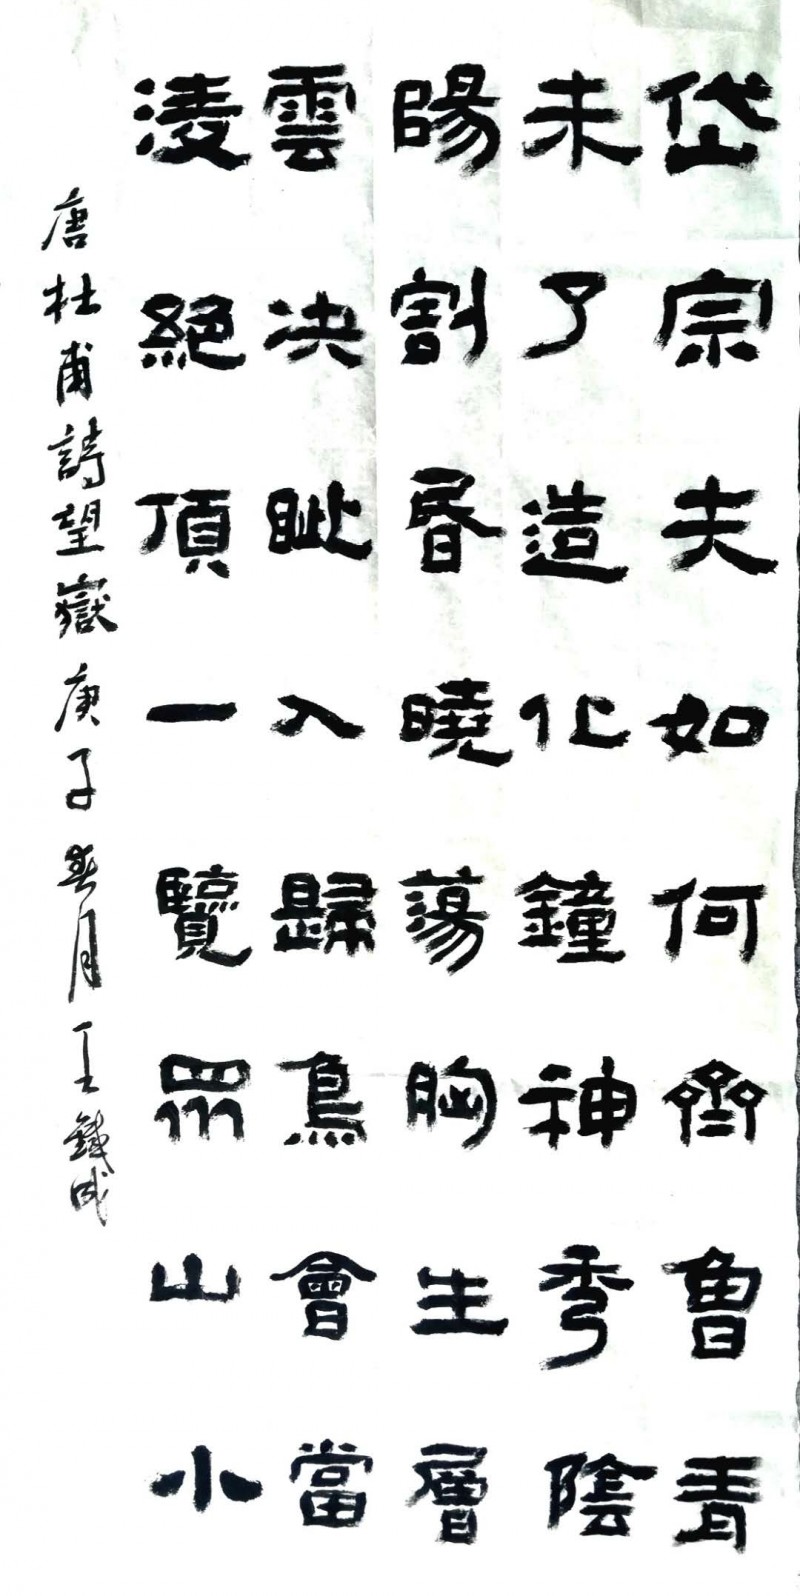 岱宗夫如何齊魯青
未了造化鐘神秀陰
陽割昏曉蕩胸生層
雲決眦入歸鳥會當
淩絕頂一覽眾山小
唐杜甫詩望嶽庚子春月王鐵成